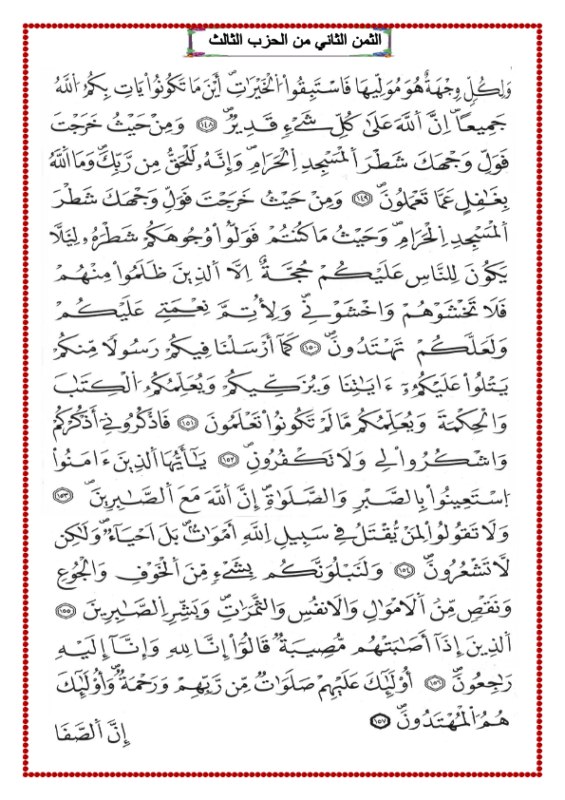 الثمن الثاني من الحزب الثالث
وَلِكُلٍّ وِجْهَةٌ هُوَ مُوَلِّيهَا فَاسْتَبِقُوا۟ اُ۬لْخَيْرَٰتِۖ أَيْنَ مَا تَكُونُوا۟ يَاتِ بِكُمُ اُ۬للَّهُ
جَمِيعاًۖ اِنَّ اَ۬للَّهَ عَلَىٰ كُلِّ شَےْءٖ قَدِيرٞۖ ١٤٨ وَمِنْ حَيْثُ خَرَجْتَ
فَوَلِّ وَجْهَكَ شَطْرَ اَ۬لْمَسْجِدِ اِ۬لْحَرَامِۖ وَإِنَّهُۥ لَلْحَقُّ مِن رَّبِّكَۖ وَمَا اَ۬للَّهُ
بِغَٰفِلٍ عَمَّا تَعْمَلُونَۖ ١٤٩ وَمِنْ حَيْثُ خَرَجْتَ فَوَلِّ وَجْهَكَ شَطْرَ
اَ۬لْمَسْجِدِ اِ۬لْحَرَامِۖ وَحَيْثُ مَا كُنتُمْ فَوَلُّوا۟ وُجُوهَكُمْ شَطْرَهُۥ لِيَلَّا
يَكُونَ لِلنَّاسِ عَلَيْكُمْ حُجَّةٌ اِلَّا اَ۬لذِينَ ظَلَمُوا۟ مِنْهُمْ
فَلَا تَخْشَوْهُمْ وَاخْشَوْنِےۖ وَلِأُتِمَّ نِعْمَتِے عَلَيْكُمْ
وَلَعَلَّكُمْ تَهْتَدُونَۖ ١٥٠ كَمَآ أَرْسَلْنَا فِيكُمْ رَسُولاٗ مِّنكُمْ
يَتْلُوا۟ عَلَيْكُمُۥٓ ءَايَٰتِنَا وَيُزَكِّيكُمْ وَيُعَلِّمُكُمُ اُ۬لْكِتَٰبَ
وَالْحِكْمَةَ وَيُعَلِّمُكُم مَّا لَمْ تَكُونُوا۟ تَعْلَمُونَۖ ١٥١ فَاذْكُرُونِےٓ أَذْكُرْكُمْ
وَاشْكُرُوا۟ لِے وَلَا تَكْفُرُونِۖ ١٥٢ يَٰٓأَيُّهَا اَ۬لذِينَ ءَامَنُوا
اُ۪سْتَعِينُوا۟ بِالصَّبْرِ وَالصَّلَوٰةِۖ إِنَّ اَ۬للَّهَ مَعَ اَ۬لصَّٰبِرِينَۖ ١٥٣
وَلَا تَقُولُوا۟ لِمَنْ يُّقْتَلُ فِے سَبِيلِ اِ۬للَّهِ أَمْوَٰتُۢۖ بَلَ اَحْيَآءٞۖ وَلَٰكِن
لَّا تَشْعُرُونَۖ ١٥٤ وَلَنَبْلُوَنَّكُم بِشَےْءٖ مِّنَ اَ۬لْخَوْفِ وَالْجُوعِ
وَنَقْصٖ مِّنَ اَ۬لَامْوَٰلِ وَالَانفُسِ وَالثَّمَرَٰتِۖ وَبَشِّرِ اِ۬لصَّٰبِرِينَ ١٥٥
اَ۬لذِينَ إِذَآ أَصَٰبَتْهُم مُّصِيبَةٞ قَالُوٓا۟ إِنَّا لِلهِ وَإِنَّآ إِلَيْهِ
رَٰجِعُونَۖ ١٥٦ أُوْلَٰٓئِكَ عَلَيْهِمْ صَلَوَٰتٞ مِّن رَّبِّهِمْ وَرَحْمَةٞۖ وَأُوْلَٰٓئِكَ
هُمُ اُ۬لْمُهْتَدُونَۖ ١٥٧
إِنَّ اَ۬لصَّفَا